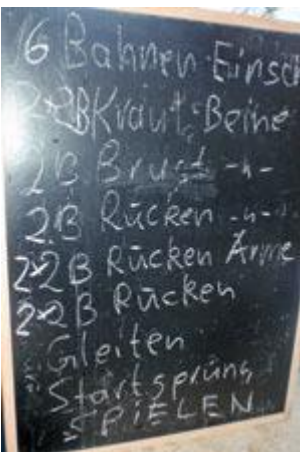 6 Bahnen Einsch
2×2B Kraul Beine
2B Brust -"-
2B Rücken -"-
2×2B Rücken Arme
2×2B Rücken
Gleiten
Startsprung
SPIELEN